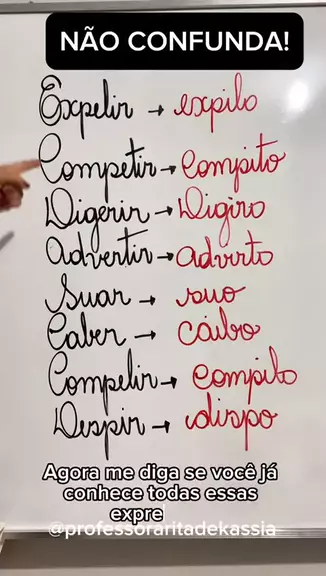 NÃO CONFUNDA!
Expelir → expilo
Competir → compito
Digerir → Digiro
Advertir → adverto
Suar → suo
Caber → caibo
Compelir → compilo
Despir → dispo
Agora me diga se você já
conhece todas essas
expre
@professoraritadekassia